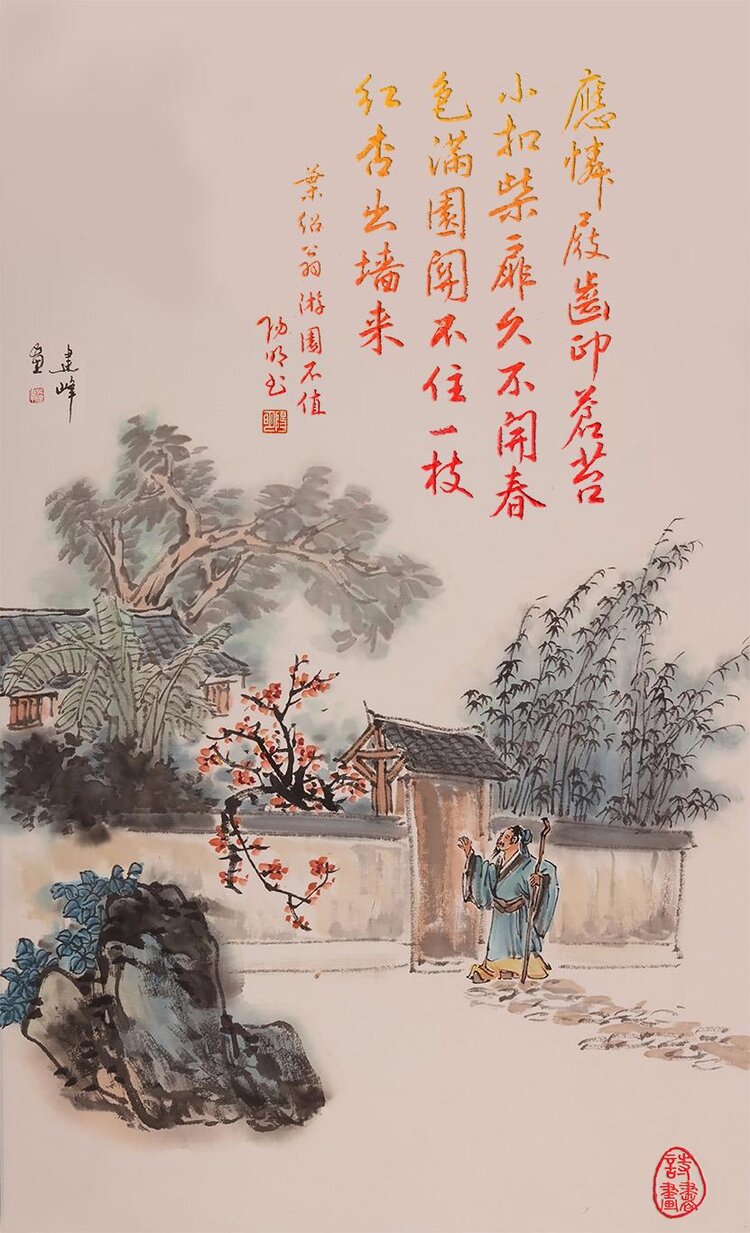 應憐屐齒印蒼苔
小扣柴扉久不開春
色滿園關不住一枝
红杏出墙来
葉紹翁游園不值
陽明书
建峰
畫
陽明
詩書畫